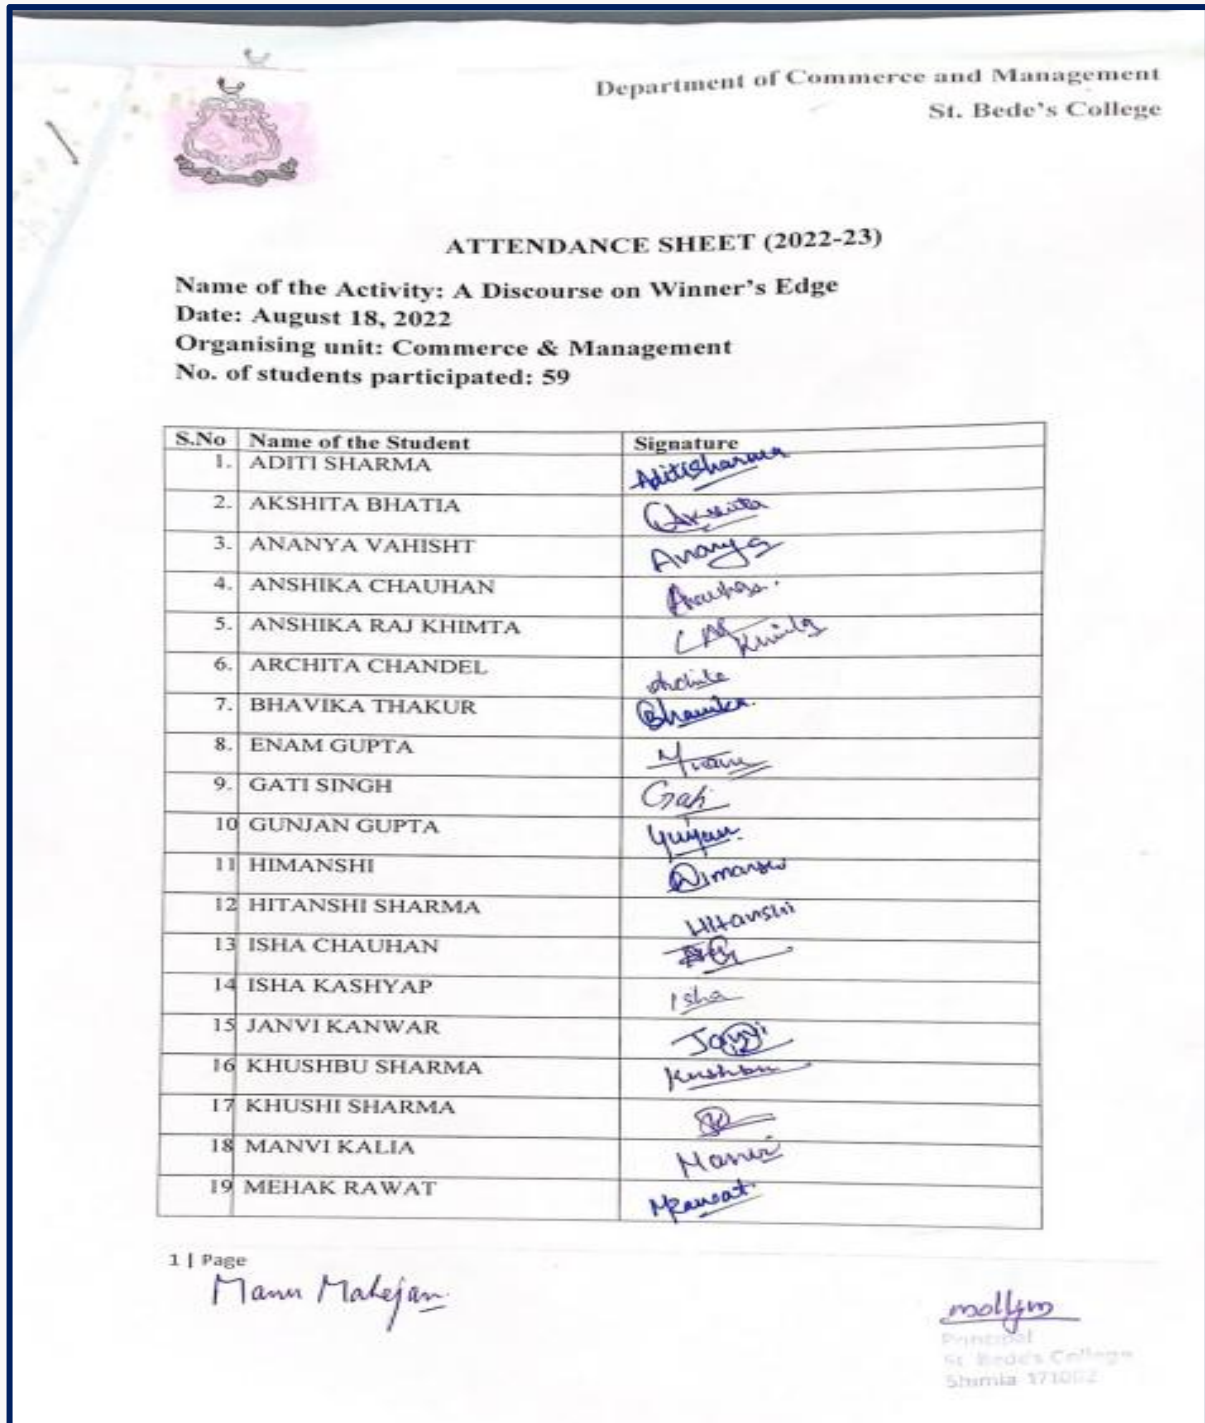 Department of Commerce and Management
St. Bede's College
ATTENDANCE SHEET (2022-23)
Name of the Activity: A Discourse on Winner's Edge
Date: August 18, 2022
Organising unit: Commerce & Management
No. of students participated: 59
S.No Name of the Student Signature
1. ADITI SHARMA AditiSharma
2. AKSHITA BHATIA Akshita
3. ANANYA VAHISHT Ananya
4. ANSHIKA CHAUHAN
5. ANSHIKA RAJ KHIMTA
6. ARCHITA CHANDEL Archita
7. BHAVIKA THAKUR Bhavika
8. ENAM GUPTA
9. GATI SINGH Gati
10 GUNJAN GUPTA Gunjan
11 HIMANSHI Himanshi
12 HITANSHI SHARMA Hitanshi
13 ISHA CHAUHAN
14 ISHA KASHYAP Isha
15 JANVI KANWAR Janvi
16 KHUSHBU SHARMA Khushbu
17 KHUSHI SHARMA
18 MANVI KALIA Manvi
19 MEHAK RAWAT MRawat
1 | Page
Manu Mahajan
mollym
Principal
St. Bede's College
Shimla 171002